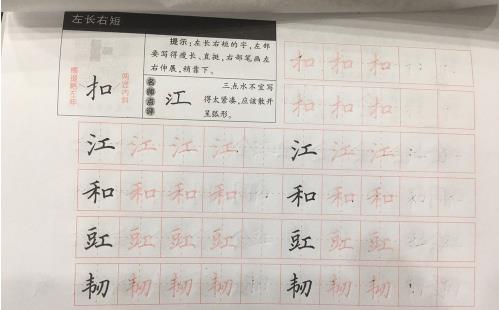 左长右短
提示:左长右短的字,左部
要写得瘦长、直挺,右部笔画左
右伸展,稍靠下。
扣
两竖内斜
名师点评
江
三点水不宜写
得太紧凑,应该散开
呈弧形。
扣 扣 扣
扣 扣 扣
江 江 江 江 江 江 江
和 和 和 和 和 和 和
豇 豇 豇 豇 豇 豇 豇
韧 韧 韧 韧 韧 韧 韧